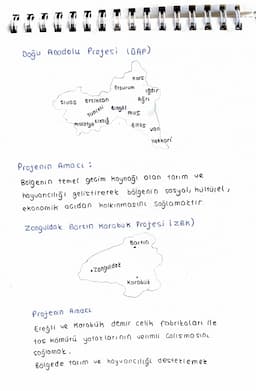 Doğu Anadolu Projesi (DAP)
Kars
Erzurum
Iğdır
Sivas Erzincan Ağrı
Tunceli Bingöl Muş
Malatya Elazığ
Bitlis Van
Hakkari
Projenin Amacı :
Bölgenin temel geçim kaynağı olan tarım ve
hayvancılığı geliştirerek bölgenin sosyal, kültürel,
ekonomik açıdan kalkınmasını sağlamaktır
Zonguldak Bartın Karabük Projesi (ZBK)
Bartın
Zonguldak
Karabük
Projenin Amacı
Ereğli ve Karabük demir çelik fabrikaları ile
taş kömürü yataklarının verimli çalışmasını
sağlamak.
Bölgede tarım ve hayvancılığı desteklemek